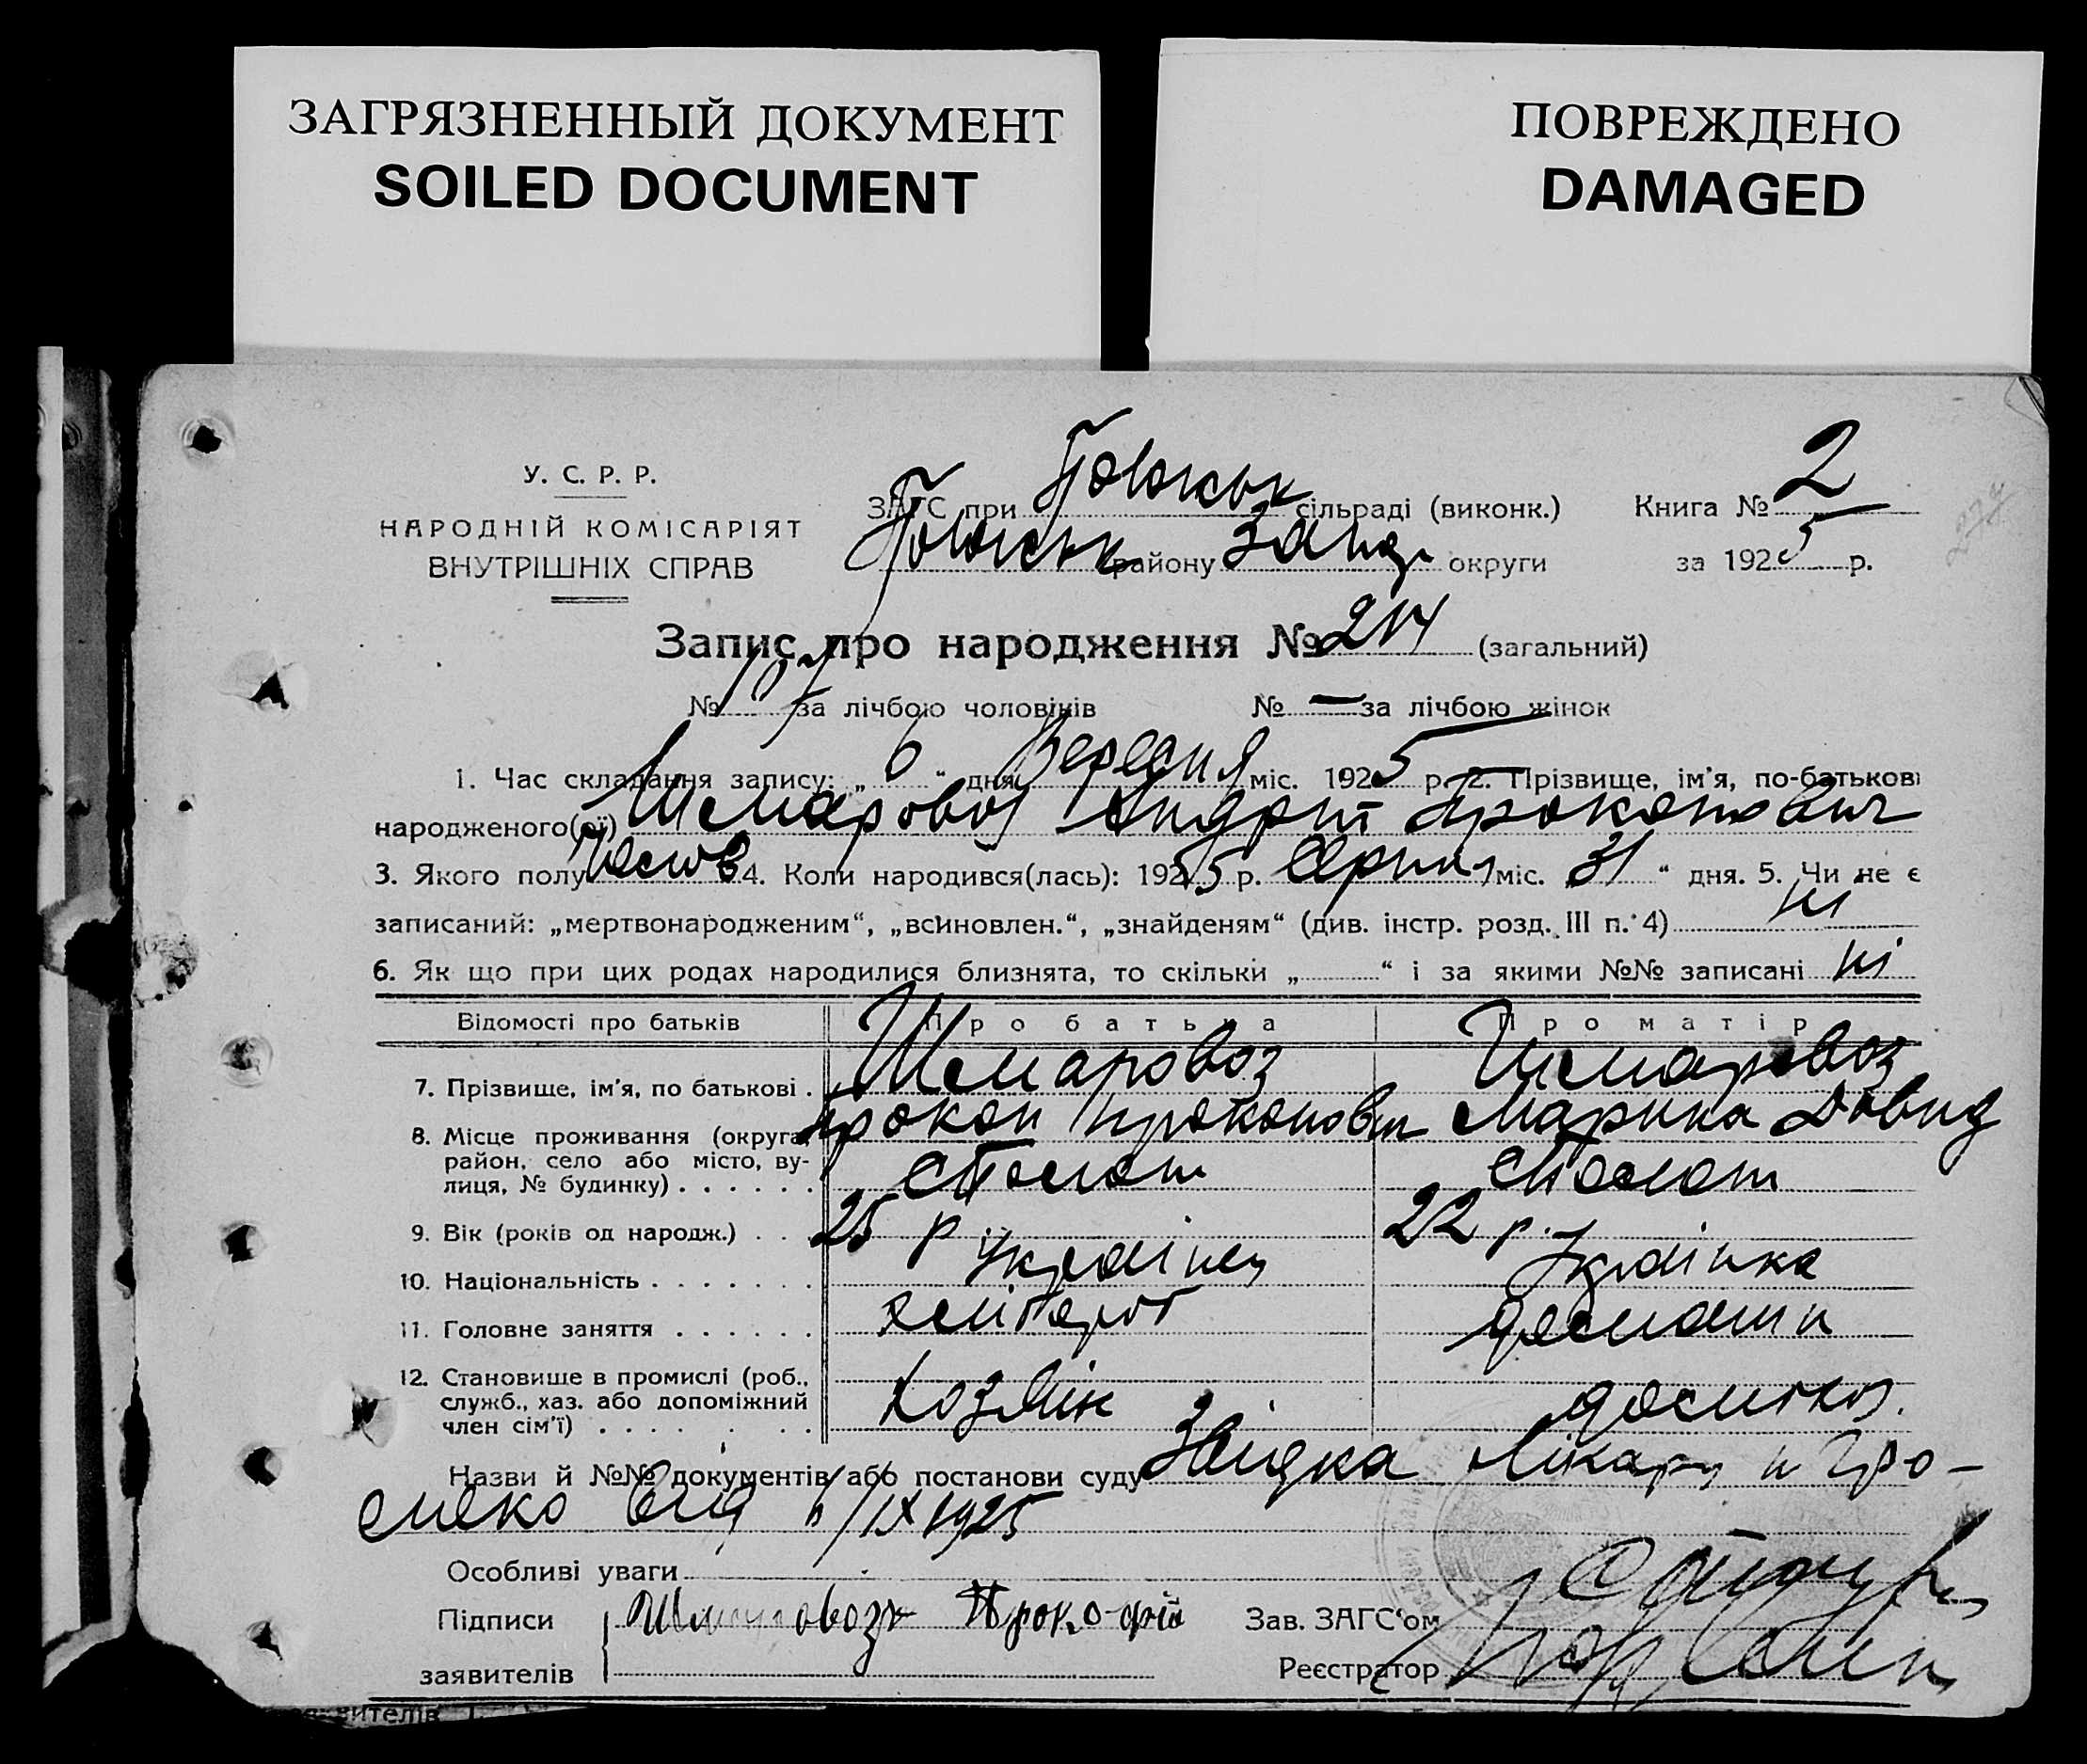 ЗАГРЯЗНЕННЫЙ ДОКУМЕНТ
SOILED DOCUMENT
ПОВРЕЖДЕНО
DAMAGED
У. С. Р. Р.
НАРОДНІЙ КОМІСАРІЯТ
ВНУТРІШНІХ СПРАВ
ЗАГС при сільраді (виконк.) Книга № 2
району Запор округи за 1925 р.
Запис про народження № 214 (загальний)
№ за лічбою чоловіків № — за лічбою жінок
1. Час складання запису: „ 6 “ дня Вересня міс. 1925 р. 2. Прізвище, ім'я, по-батькові
народженого(ої) Шемаровоз Андрій Прокопович
3. Якого полу 4. Коли народився(лась): 1925 р. Серпня міс. „ 31 “ дня. 5. Чи не є
записаний: „мертвонародженим“, „всиновлен.“, „знайденям“ (див. інстр. розд. III п. 4) ні
6. Як що при цих родах народилися близнята, то скільки „ “ і за якими №№ записані ні
Відомості про батьків Про батька Про матір
7. Прізвище, ім'я, по батькові . Шемаровоз Шемаровоз
Прокоп Прокопович Марина Давид
8. Місце проживання (округа,
район, село або місто, ву-
лиця, № будинку) . . . . . .
9. Вік (років од народж.) . . . 25 р 22 р.
10. Національність . . . . . . . Українец Українка
11. Головне заняття . . . . . . хлібороб домашн
12. Становище в промислі (роб.,
служб., хаз. або допоміжний
член сім'ї) . . . . . . . Хозяїн
Назви й №№ документів або постанови суду Звідка лікару
від 6/IX 1925
Особливі уваги
Підписи Зав. ЗАГС'ом
заявителів Реєстратор